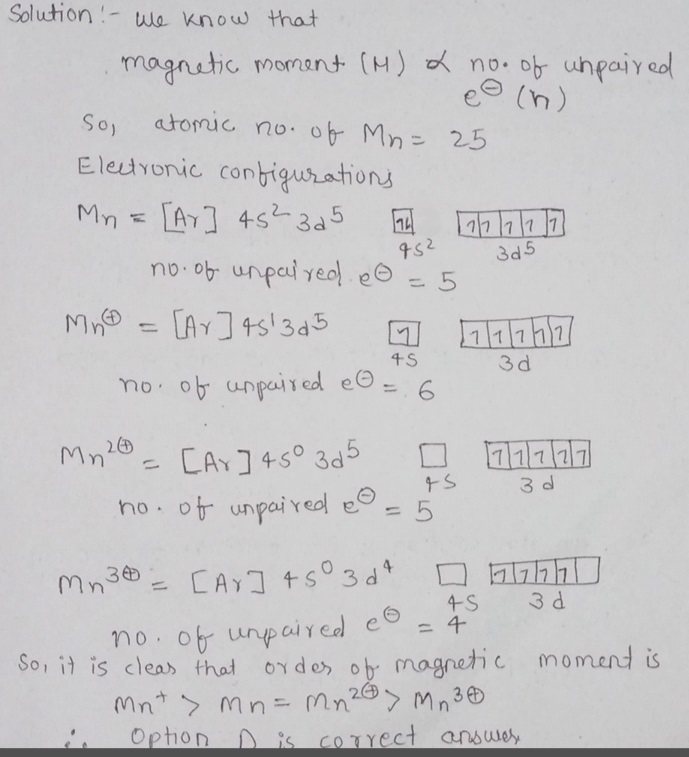 Solution :- We know that
magnetic moment (M) ∝ no. of unpaired
e⊖ (n)
So, atomic no. of Mn = 25
Electronic configurations
Mn = [Ar] 4s² 3d⁵ 1⇂ 1 1 1 1 1
4s² 3d5
no. of unpaired e⊖ = 5
Mn⊕ = [Ar] 4s¹ 3d⁵ 1 1 1 1 1 1
4s 3d
no. of unpaired e⊖ = 6
Mn²⊕ = [Ar] 4s⁰ 3d⁵ 1 1 1 1 1
4s 3d
no. of unpaired e⊖ = 5
Mn³⊕ = [Ar] 4s⁰ 3d⁴ 1 1 1 1
4s 3d
no. of unpaired e⊖ = 4
So, it is clear that order of magnetic moment is
Mn⁺ > Mn = Mn²⊕ > Mn³⊕
∴ Option D is correct answer